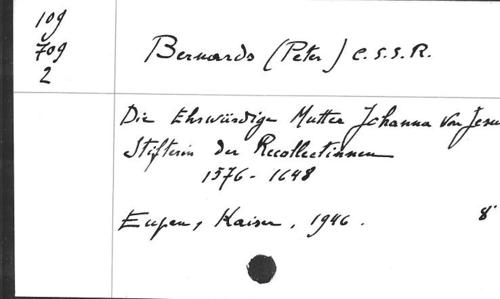 109
709
2
Bernards (Peter) C.S.S.R.
Die Ehrwürdige Mutter Johanna von Jesu
Stifterin der Recollectinnen
1576 - 1648
Eupen, Kaiser, 1946. 8°